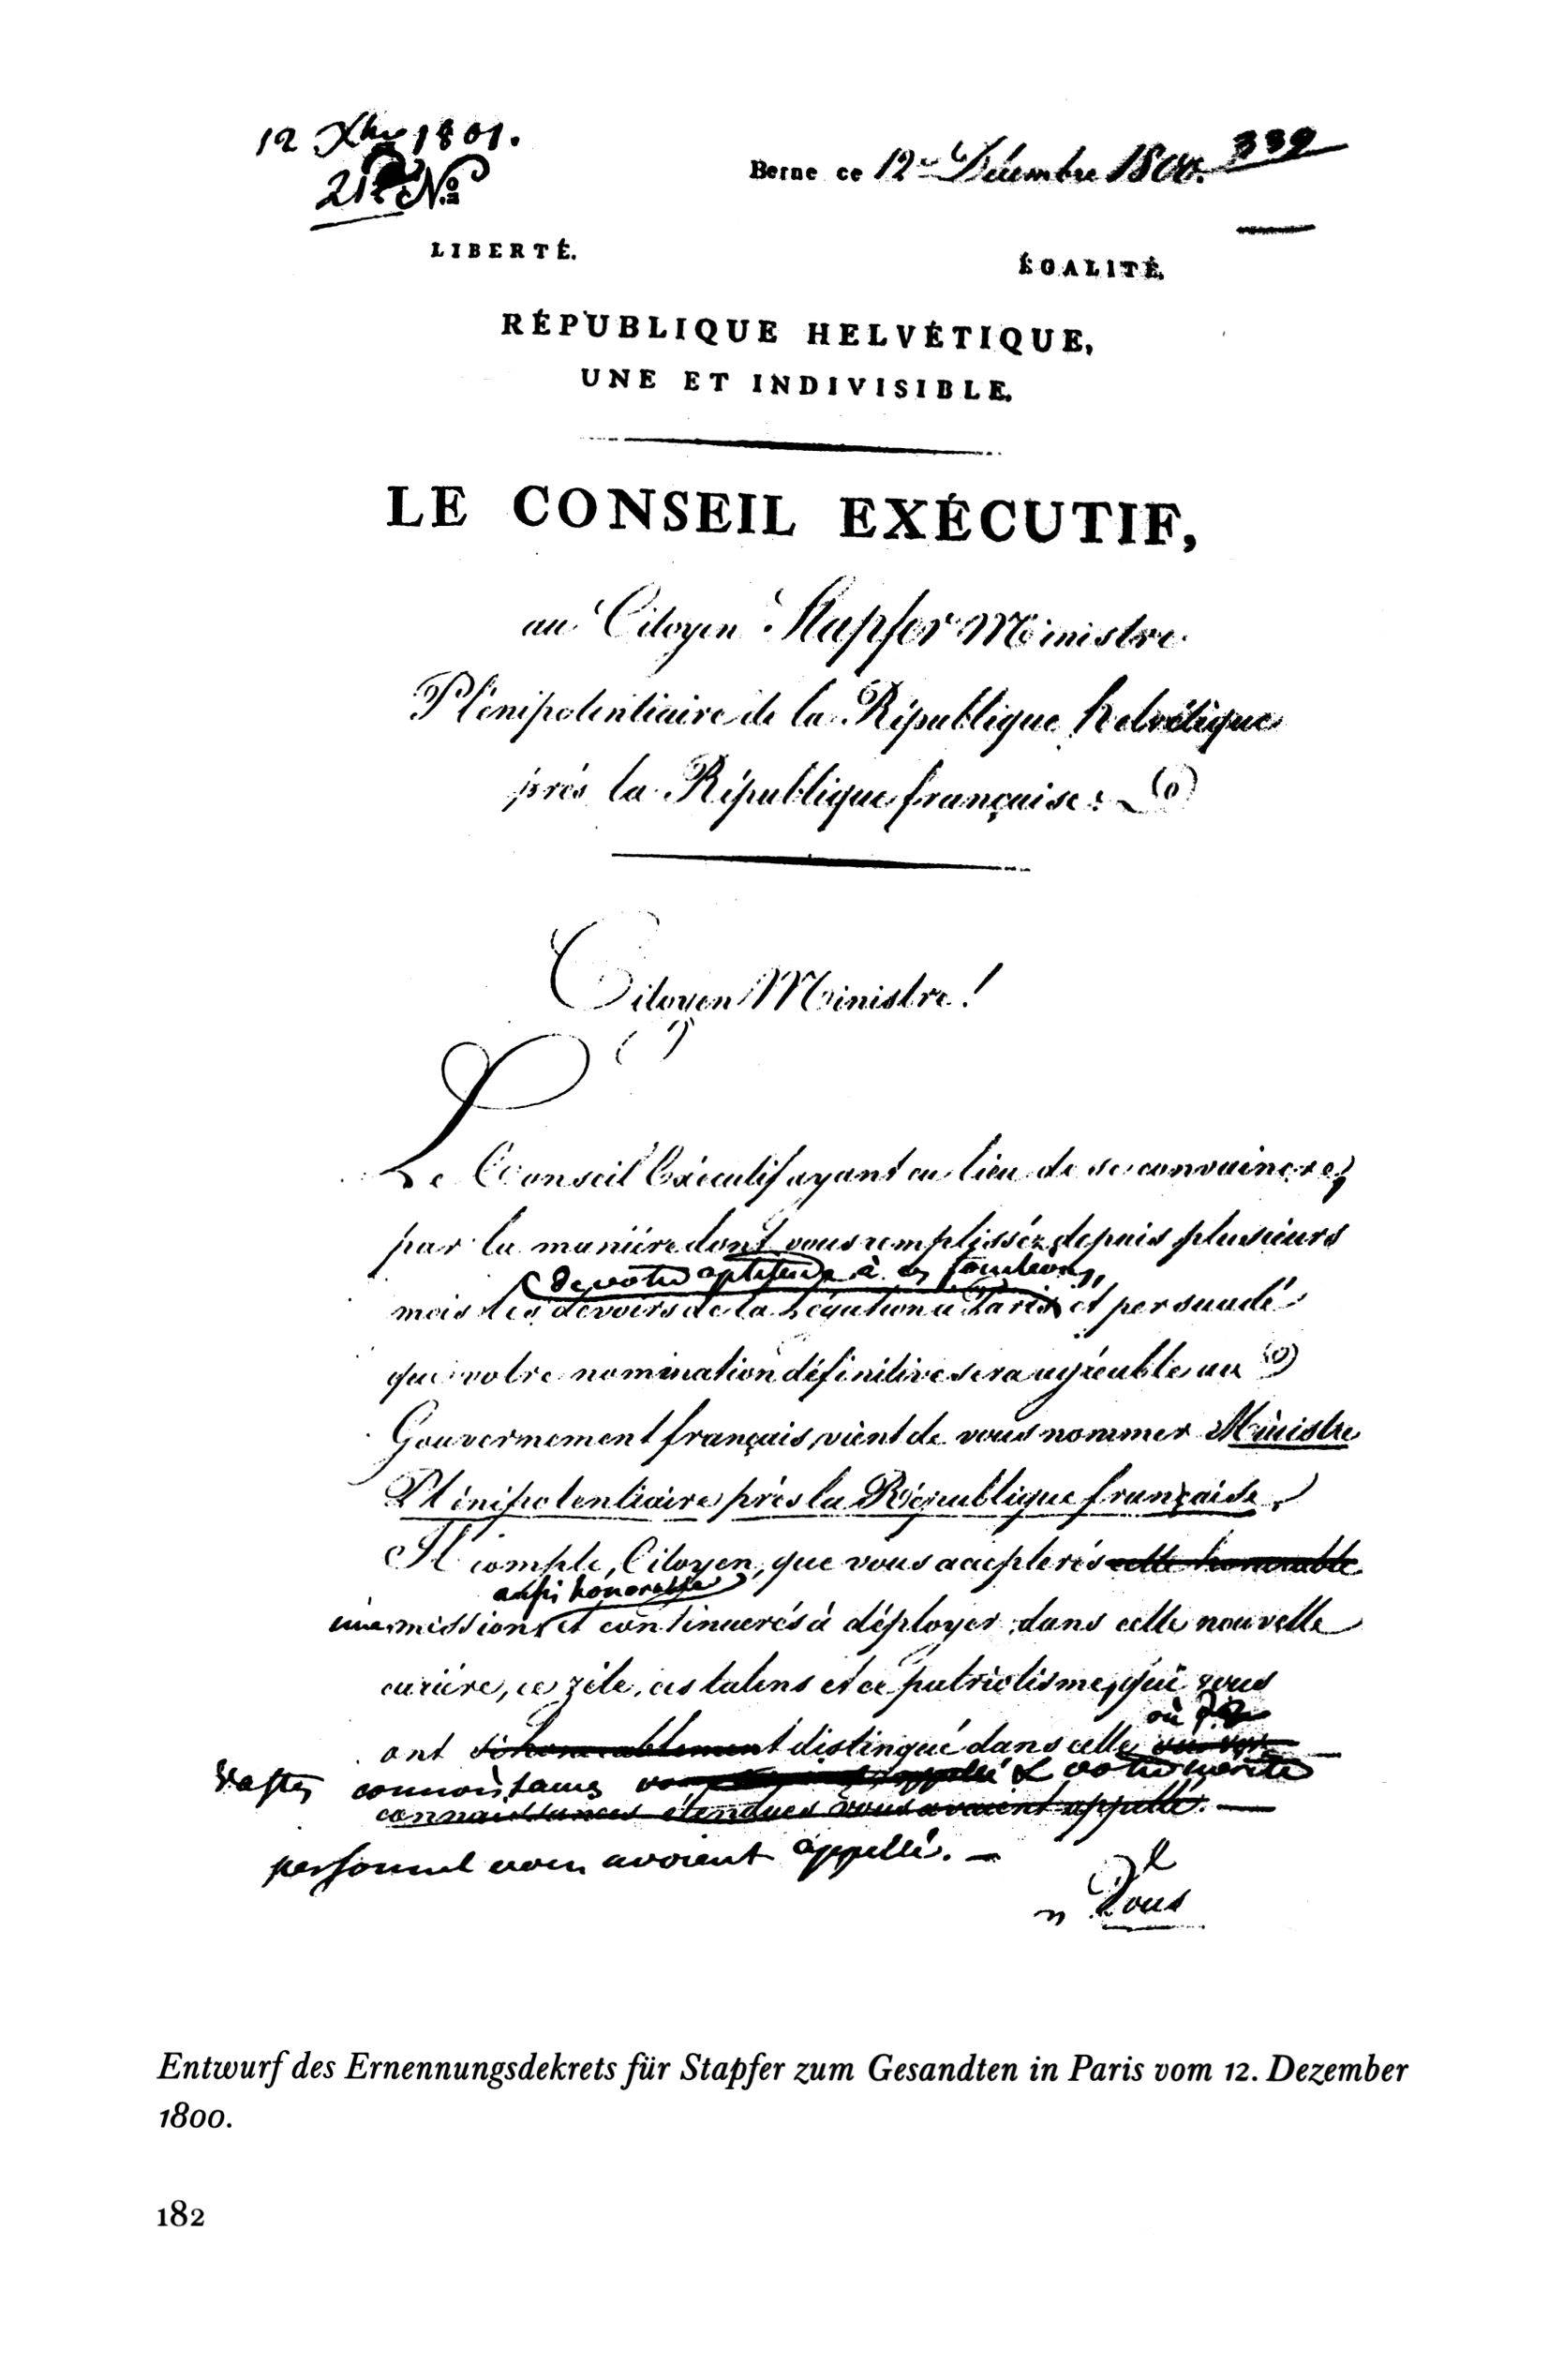 12 Xbre 1801.
Berne ce 12e Décembre 1800. 339
21 No
LIBERTÉ. ÉGALITÉ.
RÉPUBLIQUE HELVÉTIQUE,
UNE ET INDIVISIBLE.
LE CONSEIL EXÉCUTIF,
au Citoyen Stapfer Ministre
Plénipotentiaire de la République helvétique
près la République française.
Citoyen Ministre!
Le Conseil Exécutif ayant eu lieu de se convaincre,
par la manière dont vous remplisséz depuis plusieurs
de votre aptitude à ces fonctions,
mois les devoirs de la Légation à Paris et persuadé
que votre nomination définitive sera agréable au
Gouvernement français, vient de vous nommer Ministre
Plénipotentiaire près la République française.
Il compte, Citoyen, que vous accepterés cette honorable
aussi honorable
une mission, et continuerés à déployer dans cette nouvelle
carière, ce zèle, ces talens et ce patriotisme, qui vous
où
ont si honorablement distingué dans celle
vastes connoissances & votre mérite
connaissances étendues vous avaient appellé.
personnel vous avoient appellé. –
Vous
Entwurf des Ernennungsdekrets für Stapfer zum Gesandten in Paris vom 12. Dezember
1800.
182